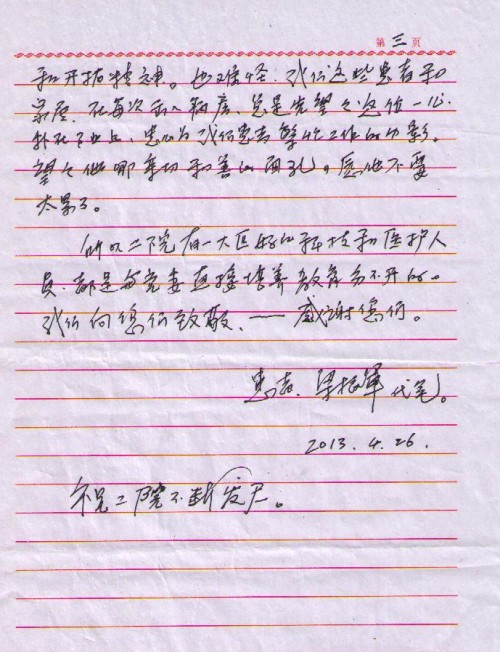 第三页
和开拓精神。也难怪、我们这些患者和
家属、在每次出入病房、总是先望々这位一心
扑在事业上、忠心为我们患者操作工作的身影。
望々他那亲切和善的面孔。愿他不要
太累了。
所以二院有一大匹好的科技和医护人
员、都是与党委直接培养教育分不开的。
我们向您们致敬、——感谢您们。
患者、梁振军代笔。
2013.4.26.
祝二院不断发展。